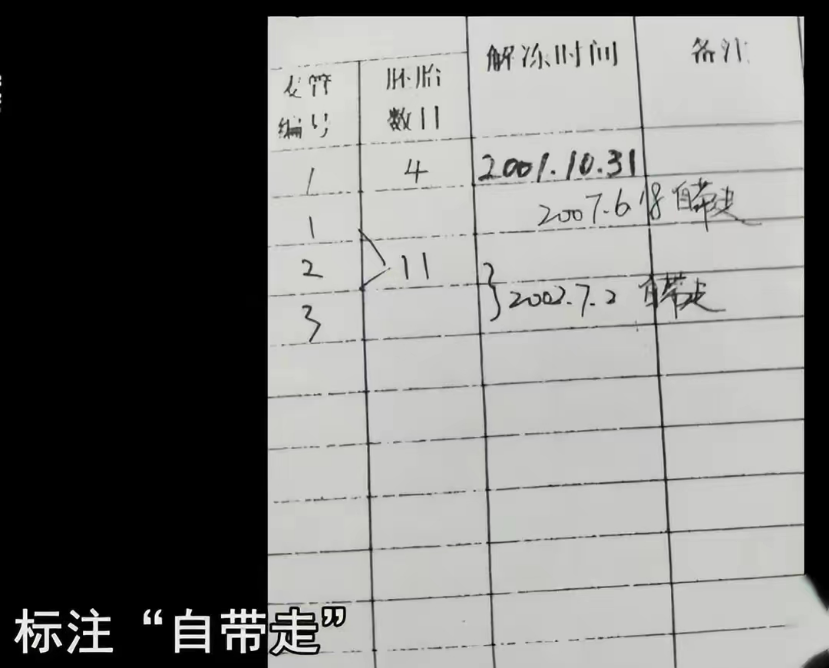 解冻时间 备注
麦管 胚胎
编号 数目
1 4 2001.10.31
1 2007.6.18 自带走
2 11
3 2002.7.2 自带走
标注“自带走”